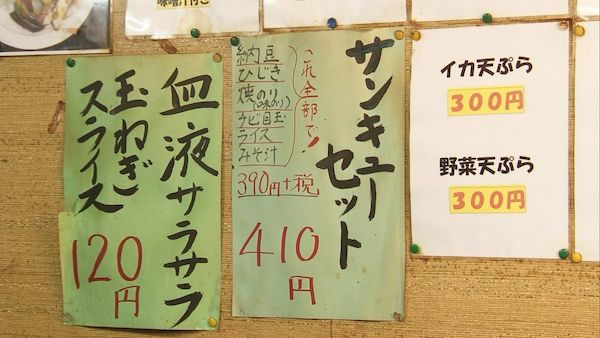 味噌汁付き
血液サラサラ
玉ねぎ
スライス
120
円
サンキュー
セット
これ全部で!
納豆
ひじき
焼のり(味のり)
チビ目玉
ライス
みそ汁
390円+税
410
円
イカ天ぷら
300円
野菜天ぷら
300円